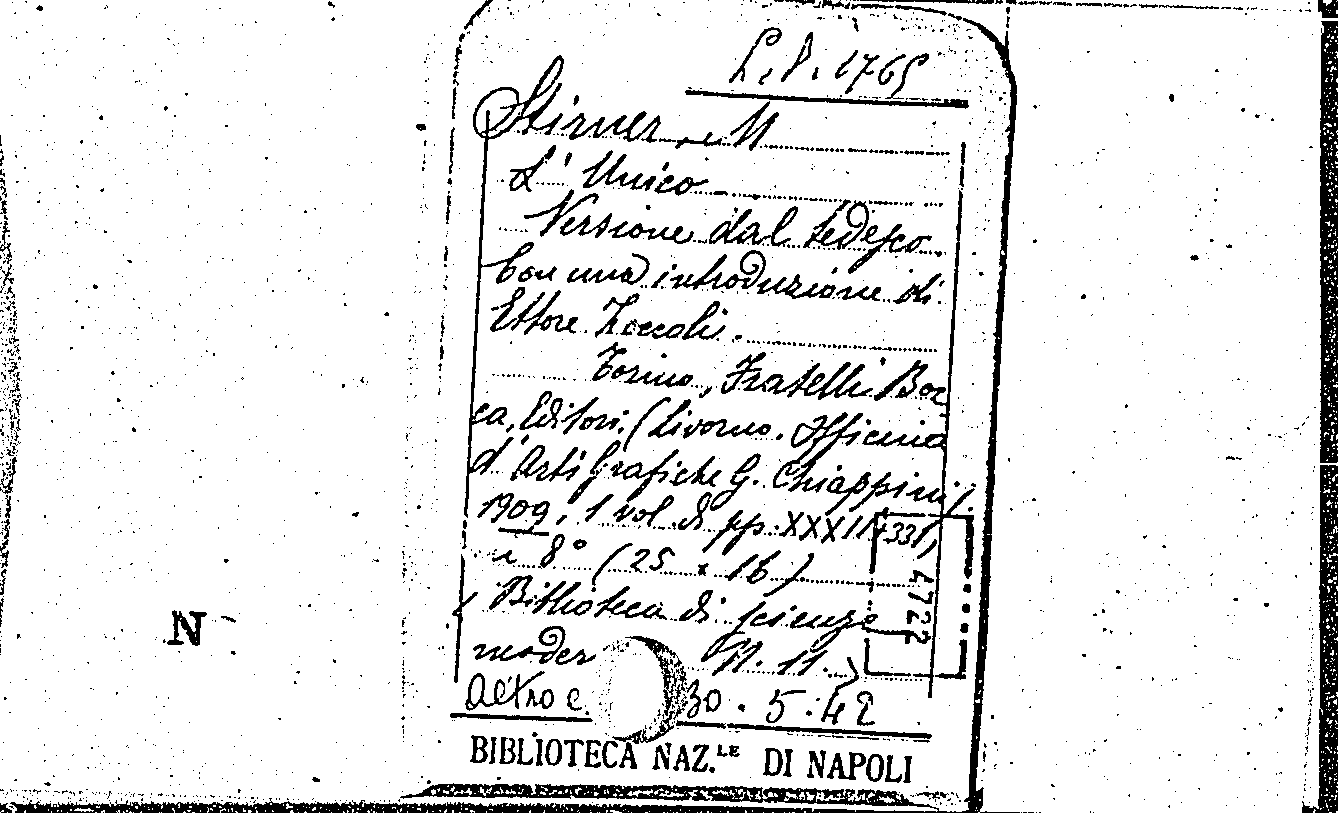 L.P. 1765
Stirner, M
L' Unico
Versione dal tedesco
con una introduzione di
Ettore Zoccoli.
Torino, Fratelli Boc
ca, Editori. (Livorno. Officina
d'Arti Grafiche G. Chiappini).
1909, 1 vol. di pp. XXXII+331,
in 8° (25 x 16)
(Biblioteca di scienze
moder N. 11.)
altro e. 30.5.42
4722
N
BIBLIOTECA NAZ.LE DI NAPOLI